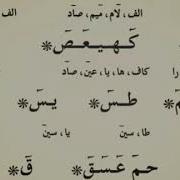 الف، لآم، مٓيم، صآد الف
كٓهيعٓصٓ ❋
را كاف، ها، يا، عين، صآد
طسٓ ❋ يسٓ ❋
طا، سين يا، سين
حمٓ عٓسٓقٓ ❋ قٓ ❋